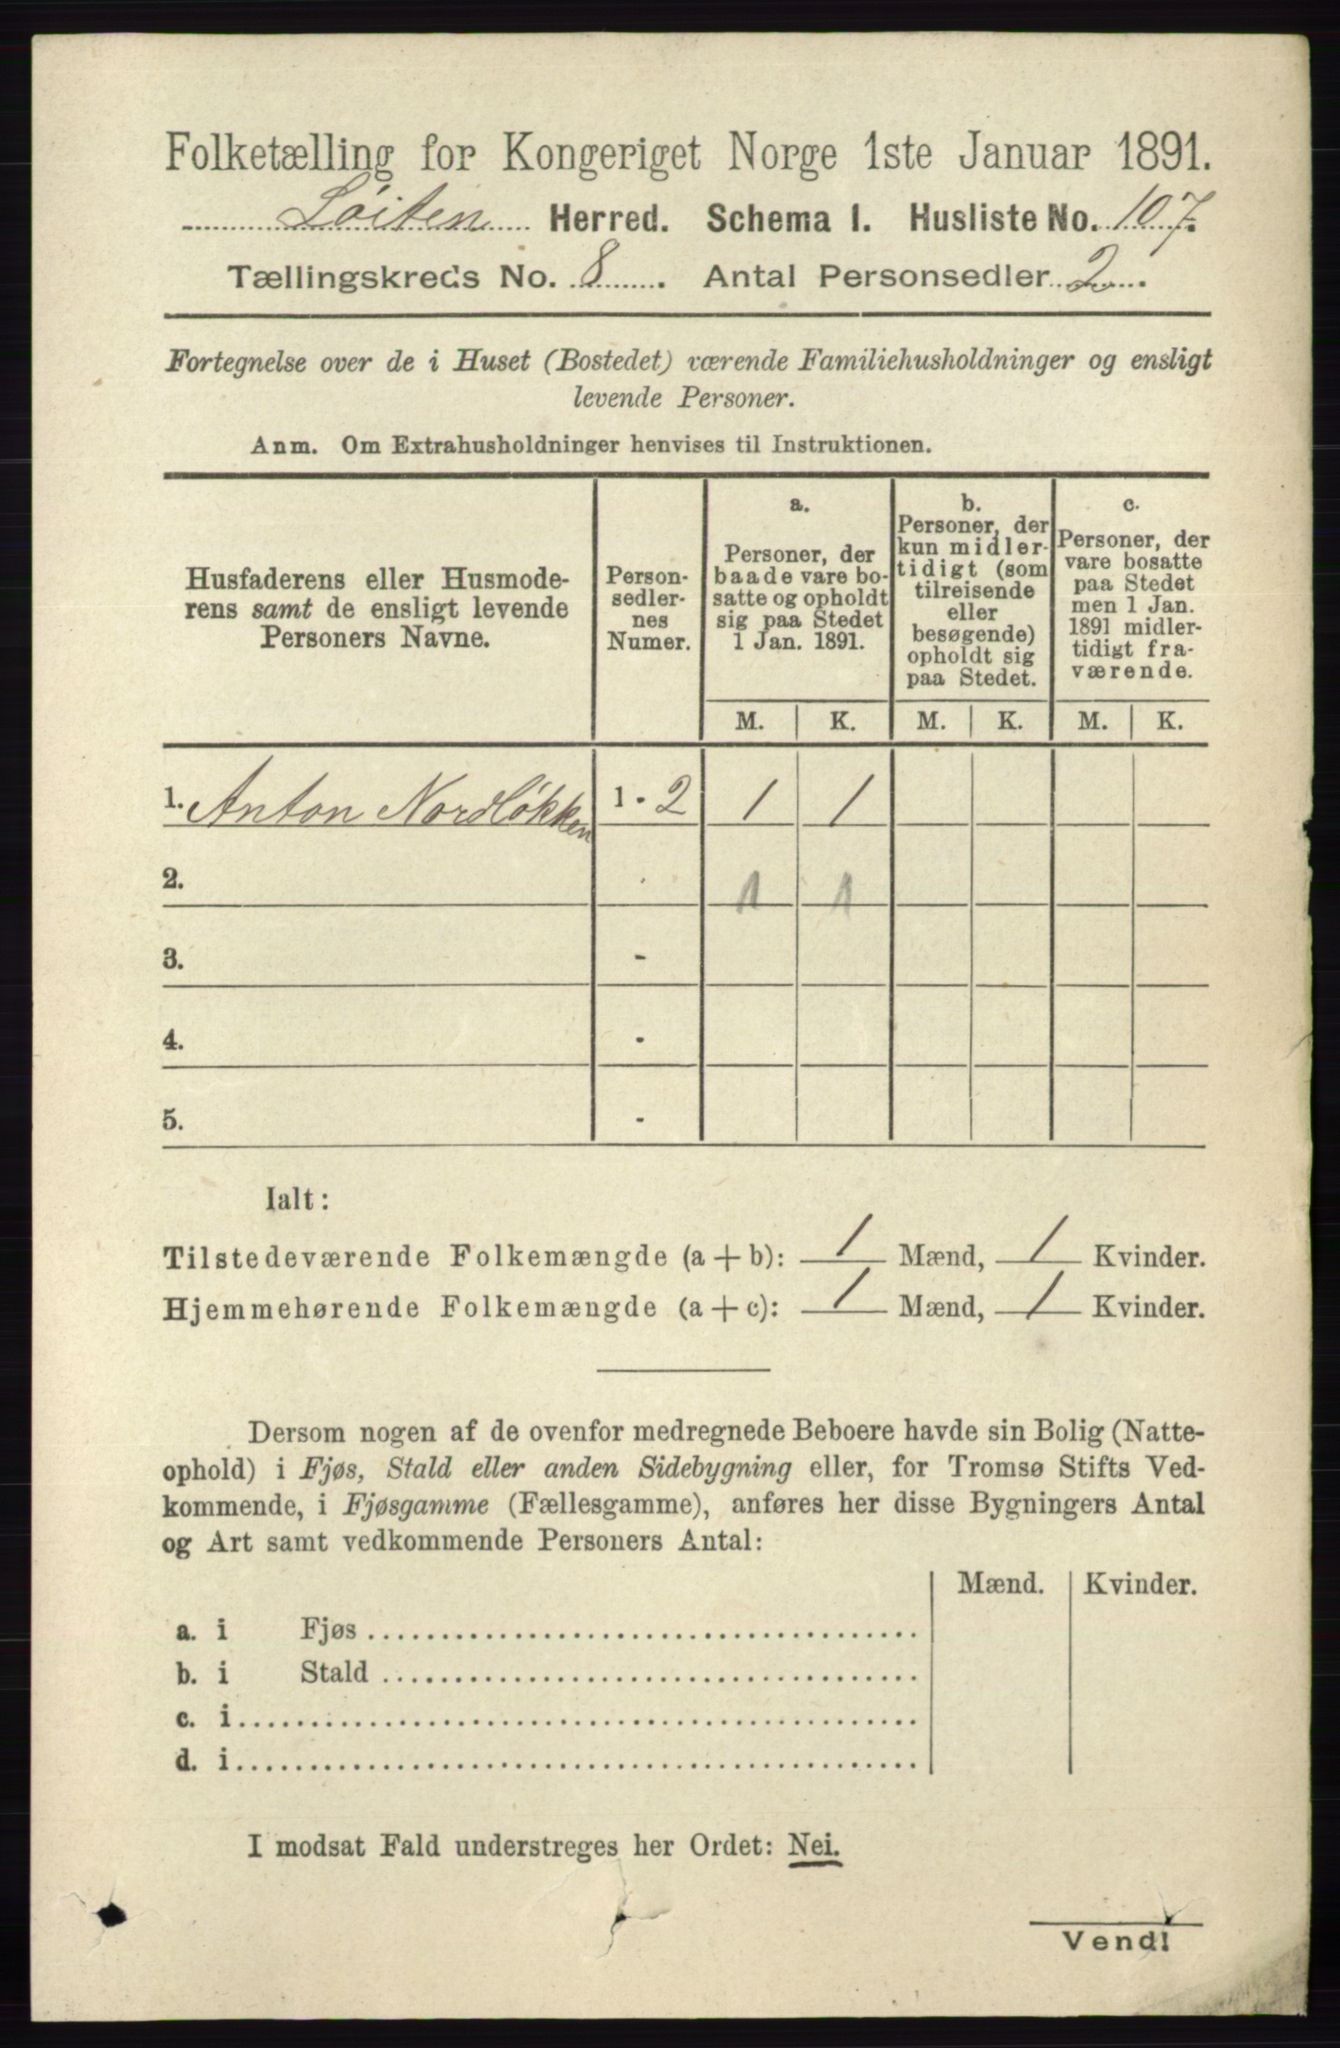 Folketælling for Kongeriget Norge 1ste Januar 1891.
Löiten Herred. Schema 1. Husliste No. 107.
Tællingskreds No. 8. Antal Personsedler 2.
Fortegnelse over de i Huset (Bostedet) værende Familiehusholdninger og ensligt
levende Personer.
Anm. Om Extrahusholdninger henvises til Instruktionen.
Husfaderens eller Husmode-
rens samt de ensligt levende
Personers Navne.
Person-
sedler-
nes
Numer.
a.
Personer, der
baade vare bo-
satte og opholdt
sig paa Stedet
1 Jan. 1891.
b.
Personer, der
kun midler-
tidigt (som
tilreisende
eller
besøgende)
opholdt sig
paa Stedet.
c.
Personer, der
vare bosatte
paa Stedet
men 1 Jan.
1891 midler-
tidigt fra-
værende.
M. K. M. K. M. K.
1. Anton Nordløkken 1 - 2 1 1
2. - 1 1
3. -
4. -
5. -
Ialt:
Tilstedeværende Folkemængde (a + b): 1 Mænd, 1 Kvinder.
Hjemmehørende Folkemængde (a + c): 1 Mænd, 1 Kvinder.
Dersom nogen af de ovenfor medregnede Beboere havde sin Bolig (Natte-
ophold) i Fjøs, Stald eller anden Sidebygning eller, for Tromsø Stifts Ved-
kommende, i Fjøsgamme (Fællesgamme), anføres her disse Bygningers Antal
og Art samt vedkommende Personers Antal:
Mænd. Kvinder.
a. i Fjøs
b. i Stald
c. i
d. i
I modsat Fald understreges her Ordet: Nei.
Vend!